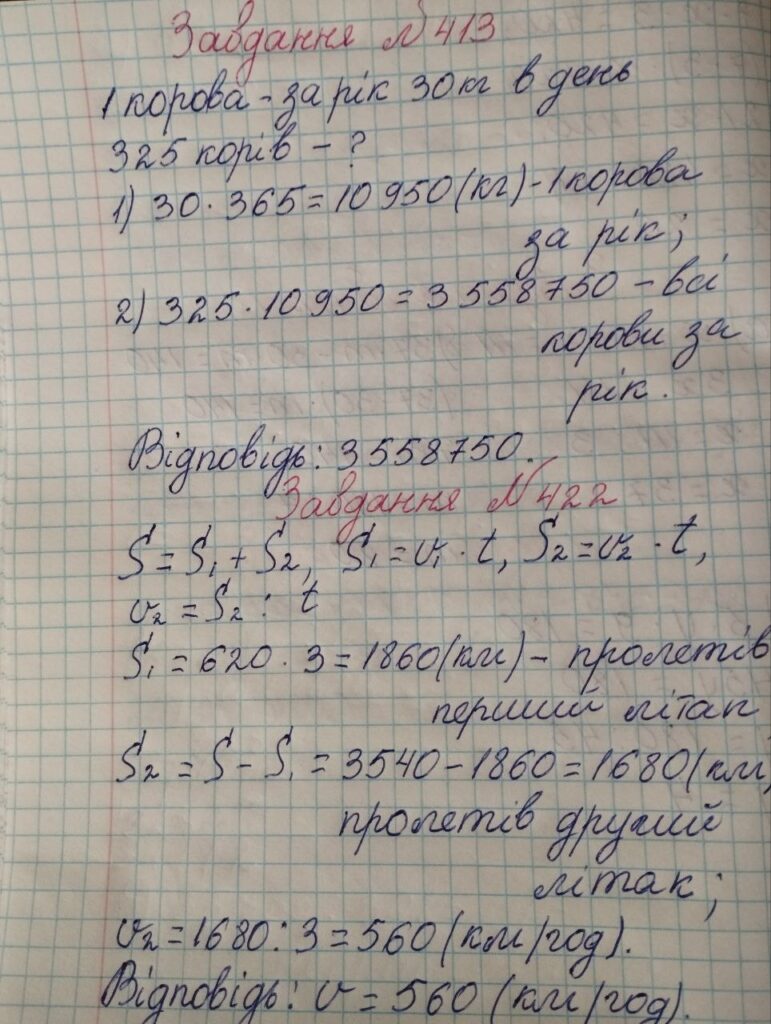 Завдання №413
1 корова - за рік 30 кг в день
325 корів - ?
1) 30 · 365 = 10 950 (кг) - 1 корова
за рік;
2) 325 · 10 950 = 3 558 750 - всі
корови за
рік.
Відповідь: 3 558 750.
Завдання №422
S = S₁ + S₂, S₁ = v₁ · t, S₂ = v₂ · t,
v₂ = S₂ : t
S₁ = 620 · 3 = 1860 (км) - пролетів
перший літак
S₂ = S - S₁ = 3540 - 1860 = 1680 (км)
пролетів другий
літак;
v₂ = 1680 : 3 = 560 (км/год).
Відповідь: v = 560 (км/год).